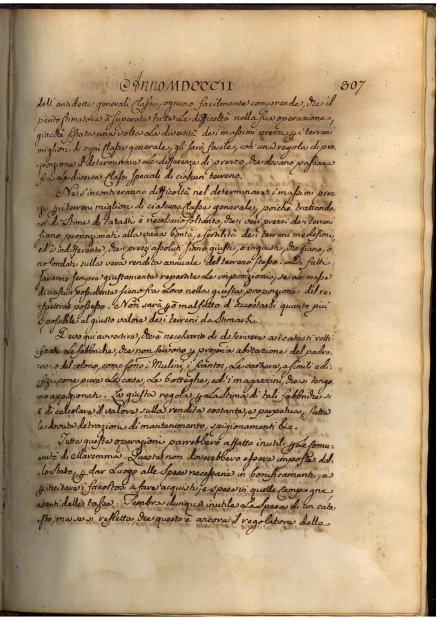 Anno MDCCCII 307
dell' antidette generali classi, ognuno facilmente comprende, che il
perito stimatore à superate tutte le difficoltà nella sua operazione,
giacché fissata una volta la diversità dei massimi prezzi pei terreni
migliori di ogni classe generale, gli sarà facile, con una regola di pro-
porzione il determinare le differenze di prezzo, che devono passare
fra le diverse classi speciali di ciascun terreno.
Ne s'incontreranno difficoltà nel determinare i massimi prez-
zi pei terreni migliori di ciascuna classe generale, poiché trattandosi
di stime di catasti è necessario soltanto, che i veri prezzi dei terreni
siano proporzionati alla varia bontà, e fertilità dei terreni medesimi,
ed è indifferente, che i prezzi assoluti siano giusti, o ingiusti, che siano, o
no fondati sulla vera rendita annuale del terreno stesso. In fatti
saranno sempre giustamente repartite le imposizioni, se le masse
di ciascun possidente sien fra loro nella giusta proporzione del re-
spettivo possesso. Non sarà però malfatto d'accostarsi quanto più
è possibile al giusto valore dei terreni da stimarsi.
Devo qui avvertire, che è necessario di descrivere ai catasti retti-
ficati le fabbriche, che non servono per propria abitazione del padro-
ne, o del colono, come sono i Mulini, i frantoi, le cartiere, e simili edi-
fizi, come pure le case, le botteghe, ed i magazzini, che si tengo-
no appigionati. La giusta regola per la stima di tali fabbriche si
è di calcolare il valore sulla rendita costante, e perpetua, fatte
le dovute detrazioni di mantenimento, spigionamenti &c.
Tutte queste operazioni parrebbero affatto inutili per le Comu-
nità di Maremma. Queste non dovrebbero essere imposte del-
lo stato, per dar luogo alle spese necessarie in bonificamenti, e
per incitare i facoltosi a fare acquisti, e spese in quelle Campagne
esenti dalle tasse. Sembra dunque inutile la spesa di un cata-
sto, ma se si rifletta, che questo è ancora il regolatore delle